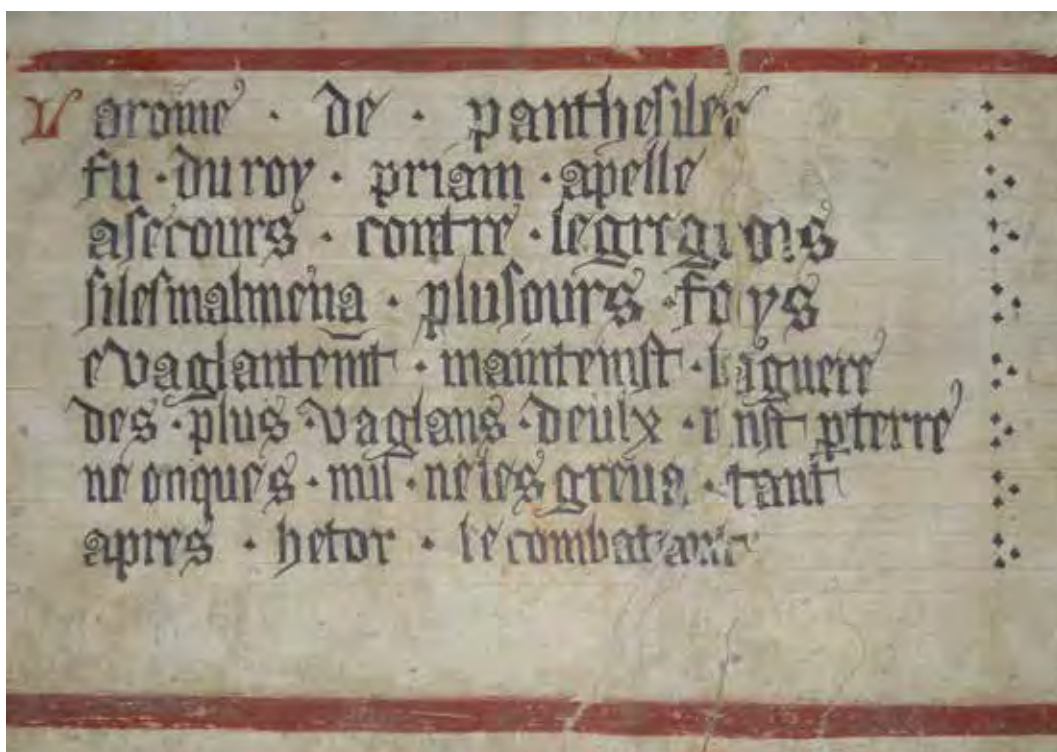 L arome · de · panthesilee
fu · du roy · priam · apelle
asecours · contre · legregions
silesmalmena · plusours · foys
e vaglantemt · mainteinst · laguere
des · plus · vaglans · deulx · mist pterre
ne onques · nul · ne les greua · tant
apres · hetor · le combatant